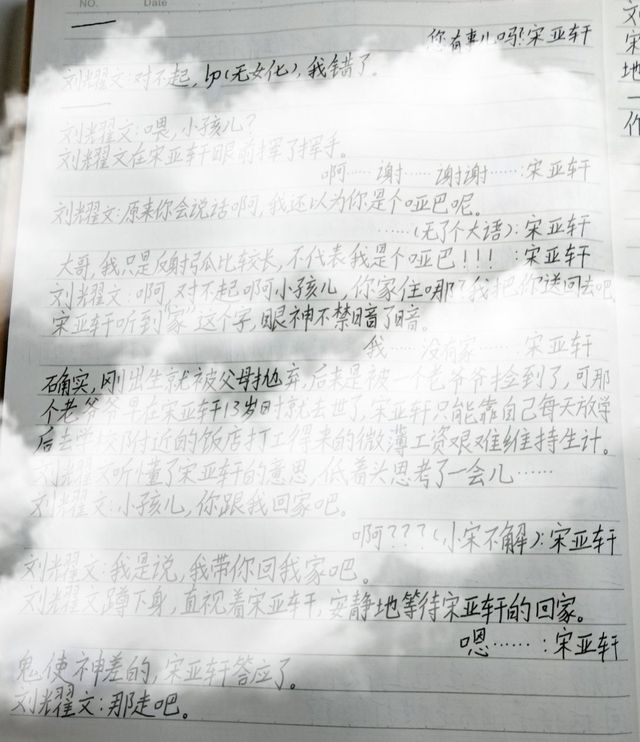 NO.
Date
你有事儿吗?宋亚轩
刘耀文:对不起,lp(无女化),我错了。
刘耀文:喂,小孩儿?
刘耀文在宋亚轩眼前挥了挥手。
啊……谢……谢谢……:宋亚轩
刘耀文:原来你会说话啊,我还以为你是个哑巴呢。
……(无了个大语):宋亚轩
大哥,我只是反射弧比较长,不代表我是个哑巴!!! :宋亚轩
刘耀文:啊,对不起啊小孩儿,你家住哪?我把你送回去吧
宋亚轩听到“家”这个字,眼神不禁暗了暗。
我……没有家……:宋亚轩
确实,刚出生就被父母抛弃,后来是被一个老爷爷捡到了,可那
个老爷爷早在宋亚轩13岁时就去世了,宋亚轩只能靠自己每天放学
后去学校附近的饭店打工得来的微薄工资艰难维持生计。
刘耀文听懂了宋亚轩的意思,低着头思考了一会儿……
刘耀文:小孩儿,你跟我回家吧。
啊???(小宋不解):宋亚轩
刘耀文:我是说,我带你回我家吧。
刘耀文蹲下身,直视着宋亚轩,安静地等待宋亚轩的回家。
嗯……:宋亚轩
鬼使神差的,宋亚轩答应了。
刘耀文:那走吧。
文
宋
地
一
作